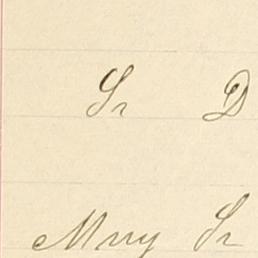 Sr D
Mrry Sr